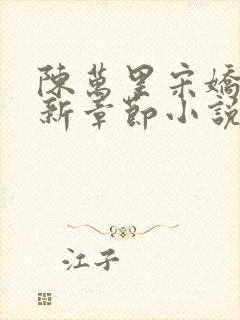 陳萬里宋嬌
新章節小說
江子